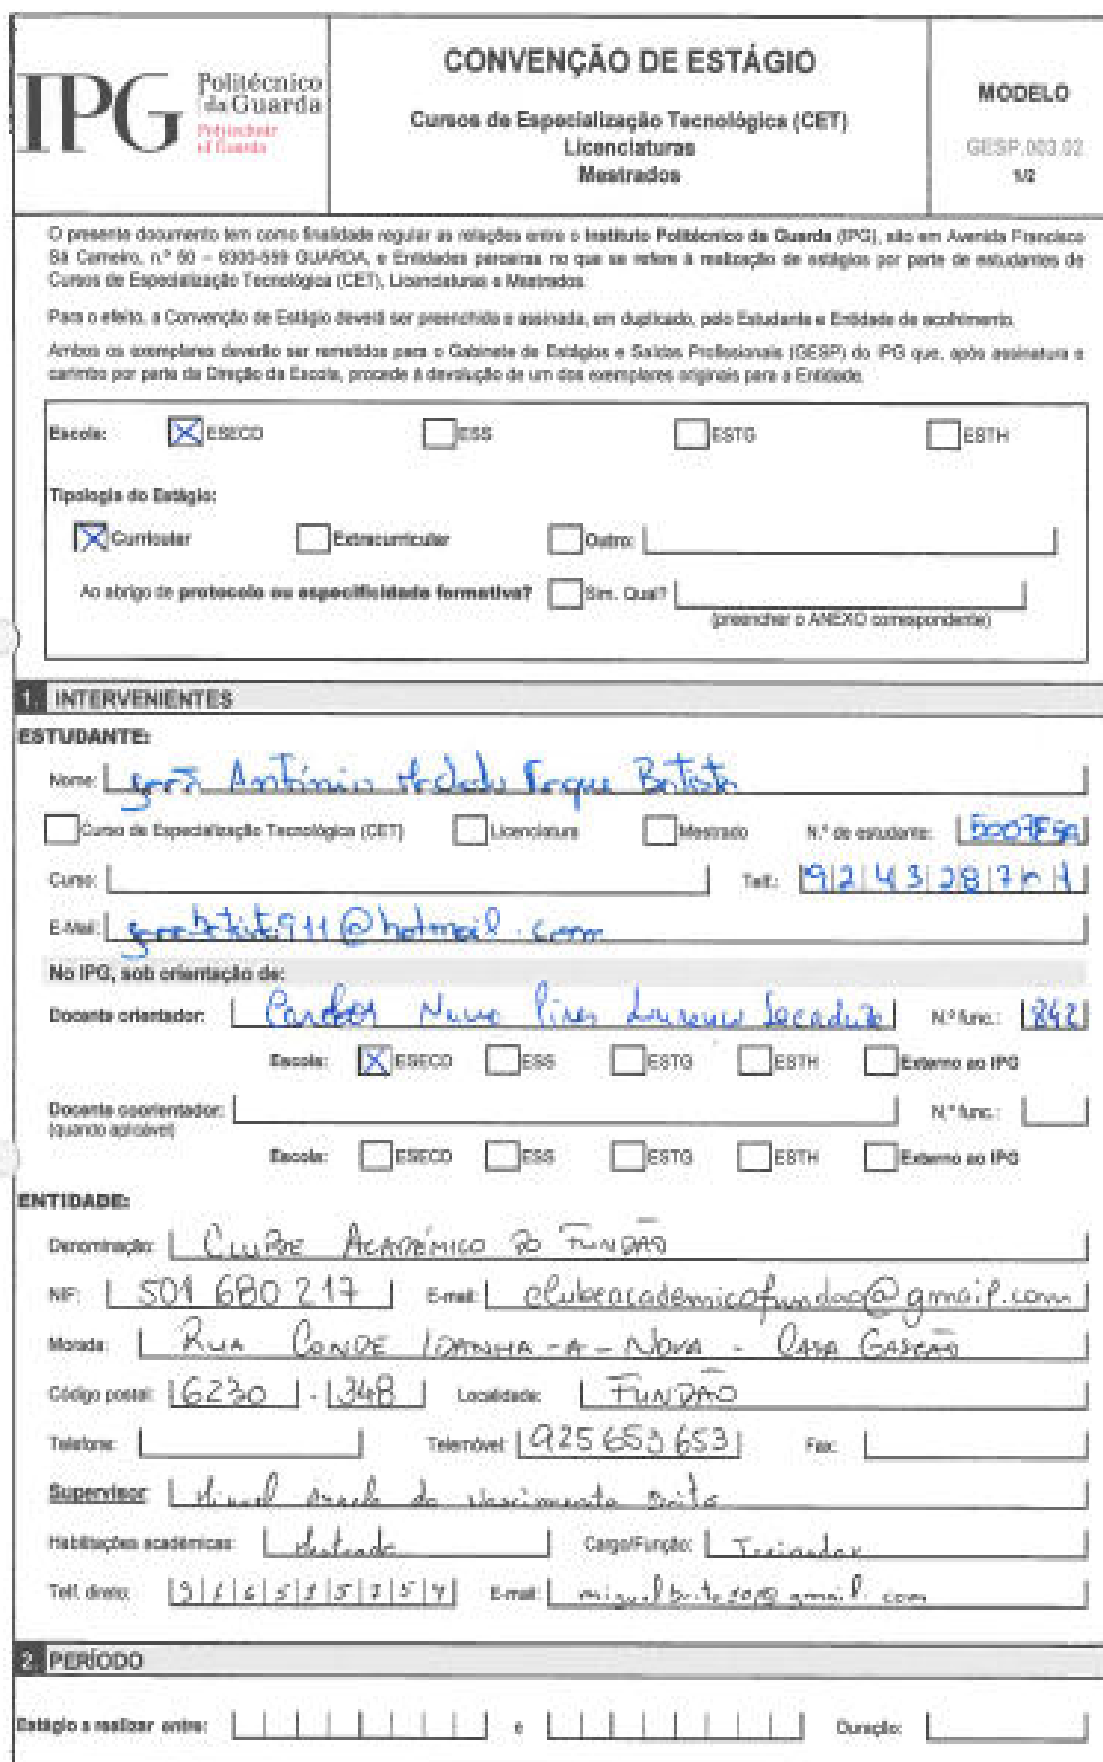 IPG Politécnico da Guarda
Polytechnic of Guarda
CONVENÇÃO DE ESTÁGIO
Cursos de Especialização Tecnológica (CET)
Licenciaturas
Mestrados
MODELO
GESP.003.02
1/2
O presente documento tem como finalidade regular as relações entre o Instituto Politécnico da Guarda (IPG), sito em Avenida Francisco
Sá Carneiro, n.º 50 – 6300-559 GUARDA, e Entidades parceiras no que se refere à realização de estágios por parte de estudantes de
Cursos de Especialização Tecnológica (CET), Licenciaturas e Mestrados.
Para o efeito, a Convenção de Estágio deverá ser preenchida e assinada, em duplicado, pelo Estudante e Entidade de acolhimento.
Ambos os exemplares deverão ser remetidos para o Gabinete de Estágios e Saídas Profissionais (GESP) do IPG que, após assinatura e
carimbo por parte da Direção da Escola, procede à devolução de um dos exemplares originais para a Entidade.
Escola: ESECD ESS ESTG ESTH
Tipologia do Estágio:
Curricular Extracurricular Outro:
Ao abrigo de protocolo ou especificidade formativa? Sim. Qual?
(preencher o ANEXO correspondente)
1. INTERVENIENTES
ESTUDANTE:
Nome: António Roque Batista
Curso de Especialização Tecnológica (CET) Licenciatura Mestrado N.º de estudante:
Curso: Telf.:
E-Mail:
No IPG, sob orientação de:
Docente orientador: Nuno Pires Lourenço N.º func.: 842
Escola: ESECD ESS ESTG ESTH Externo ao IPG
Docente coorientador: N.º func.:
(quando aplicável)
Escola: ESECD ESS ESTG ESTH Externo ao IPG
ENTIDADE:
Denominação: CLUBE ACADÉMICO DO FUNDÃO
NIF: 501 680 217 E-mail: clubeacademicofundao@gmail.com
Morada: RUA CONDE IDANHA-A-NOVA - CASA
Código postal: 6230 - 348 Localidade: FUNDÃO
Telefone: Telemóvel: 925 653 653 Fax:
Supervisor: Miguel do Nascimento Brito
Habilitações académicas: Mestrado Cargo/Função: Treinador
Telf. direto: E-mail:
2. PERÍODO
Estágio a realizar entre: e Duração: